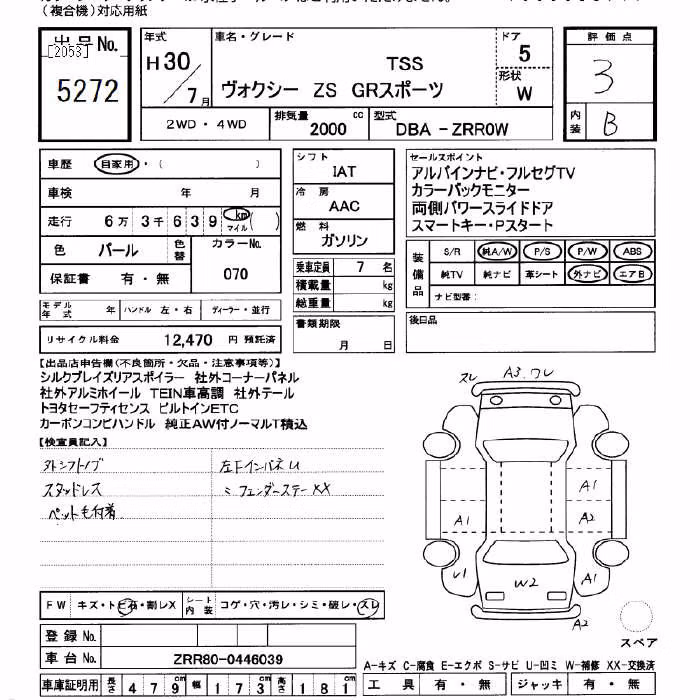 (複合機)対応用紙
出品No.
[2053]
5272
年式
H30/7月
車名・グレード
TSS
ヴォクシー ZS GRスポーツ
ドア 5
形状 W
評価点
3
内装 B
2WD・4WD
排気量 2000 cc
型式 DBA-ZRR0W
車歴 自家用・( )
車検 年 月
走行 6万3千639 km マイル( )
色 パール
色替
カラーNo. 070
保証書 有・無
シフト
IAT
冷房
AAC
燃料
ガソリン
乗車定員 7 名
積載量 kg
総重量 kg
セールスポイント
アルパインナビ・フルセグTV
カラーバックモニター
両側パワースライドドア
スマートキー・Pスタート
装備品
S/R 純A/W P/S P/W ABS
純TV 純ナビ 革シート 外ナビ エアB
ナビ型番:
モデル年式 年 ハンドル 左・右 ディーラー・並行
リサイクル料金 12,470 円 預託済
書類期限
月 日
後日品
【出品店申告欄(不良箇所・欠品・注意事項等)】
シルクブレイズリアスポイラー 社外コーナーパネル
社外アルミホイール TEIN車高調 社外テール
トヨタセーフティセンス ビルトインETC
カーボンコンビハンドル 純正AW付ノーマルT積込
【検査員記入】
外シフトノブ
スタッドレス
ペット毛付着
左FインパネU
〃フェンダーステーXX
スレ A3.ワレ
A1
A1 A2
U1 W2 A1
A2
スペア
FW キズ・トビ石・割レX
シート内装 コゲ・穴・汚レ・シミ・破レ・スレ
登録No.
車台No. ZRR80-0446039
車庫証明用 長さ 479cm 幅 173cm 高さ 181cm
A-キズ C-腐食 E-エクボ S-サビ U-凹ミ W-補修 XX-交換済
工具 有・無 ジャッキ 有・無